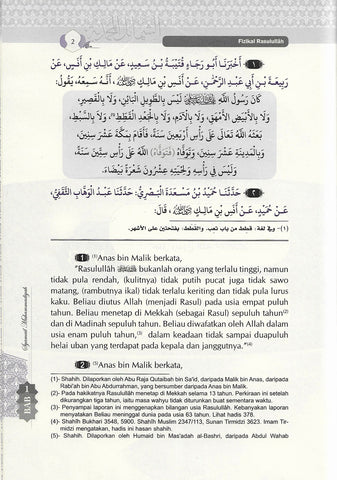 2
Fizikal Rasulullah
١ أَخْبَرَنَا أَبُو رَجَاءٍ قُتَيْبَةُ بْنُ سَعِيدٍ، عَنْ مَالِكِ بْنِ أَنَسٍ، عَنْ
رَبِيعَةَ بْنِ أَبِي عَبْدِ الرَّحْمَنِ، عَنْ أَنَسِ بْنِ مَالِكٍ، أَنَّهُ سَمِعَهُ، يَقُولُ:
كَانَ رَسُولُ اللَّهِ ﷺ لَيْسَ بِالطَّوِيلِ الْبَائِنِ، وَلَا بِالْقَصِيرِ،
وَلَا بِالْأَبْيَضِ الْأَمْهَقِ، وَلَا بِالْآدَمِ، وَلَا بِالْجَعْدِ الْقَطَطِ(١)، وَلَا بِالسَّبْطِ،
بَعَثَهُ اللَّهُ تَعَالَى عَلَى رَأْسِ أَرْبَعِينَ سَنَةً، فَأَقَامَ بِمَكَّةَ عَشْرَ سِنِينَ،
وَبِالْمَدِينَةِ عَشْرَ سِنِينَ، وَتَوَفَّاهُ (فَتَوَفَّاهُ) اللَّهُ عَلَى رَأْسِ سِتِّينَ سَنَةً،
وَلَيْسَ فِي رَأْسِهِ وَلِحْيَتِهِ عِشْرُونَ شَعْرَةً بَيْضَاءَ.
٢ حَدَّثَنَا حُمَيْدُ بْنُ مَسْعَدَةَ الْبَصْرِيُّ: حَدَّثَنَا عَبْدُ الْوَهَّابِ الثَّقَفِيُّ،
عَنْ حُمَيْدٍ، عَنْ أَنَسِ بْنِ مَالِكٍ، قَالَ:
(١)- وفي لغة: قطط من باب تعب. والقطط: بفتحتين على الأشهر.
1 (1)Anas bin Malik berkata,
"Rasulullah ﷺ bukanlah orang yang terlalu tinggi, namun
tidak pula rendah, (kulitnya) tidak putih pucat juga tidak sawo
matang, (rambutnya ikal) tidak terlalu keriting dan tidak pula lurus
kaku. Beliau diutus Allah (menjadi Rasul) pada usia empat puluh
tahun. Beliau menetap di Mekkah (sebagai Rasul) sepuluh tahun(2)
dan di Madinah sepuluh tahun. Beliau diwafatkan oleh Allah dalam
usia enam puluh tahun,(3) dalam keadaan tidak sampai duapuluh
helai uban yang terdapat pada kepala dan janggutnya."(4)
2 (5)Anas bin Malik berkata,
(1)- Shahih. Dilaporkan oleh Abu Raja Qutaibah bin Sa'id, daripada Malik bin Anas, daripada
Rabi'ah bin Abu Abdurrahman, yang bersumber daripada Anas bin Malik.
(2)- Pada hakikatnya Rasulullah menetap di Mekkah selama 13 tahun. Perkiraan ini setelah
dikurangkan tiga tahun, iaitu masa wahyu tidak diturunkan buat sementara waktu.
(3)- Penyampai laporan ini menggenapkan bilangan usia Rasulullah. Kebanyakan laporan
menyatakan Beliau meninggal dunia pada usia 63 tahun. Lihat hadis 378.
(4)- Shahih Bukhari 3548, 5900. Shahih Muslim 2347/113, Sunan Tirmidzi 3623. Imam Tir-
midzi mengatakan, hadis ini hasan shahih.
(5)- Shahih. Dilaporkan oleh Humaid bin Mas'adah al-Bashri, daripada Abdul Wahab
BAB 1